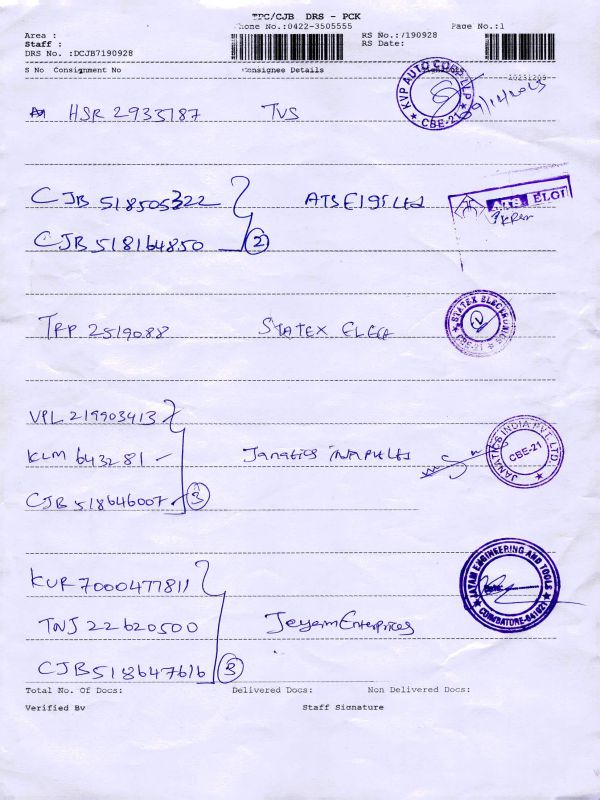 TPC/CJB DRS - PCK
Phone No.:0422-3505555 Page No.:1
Area : RS No.:/190928
Staff : RS Date:
DRS No. :DCJB7190928
S No Consignment No Consignee Details
10231209
HSR 2933787 TVS
KVP AUTO CORP LLP CBE-21
09/12/2023
CJB 518505322 ATS ELGI Ltd
CJB 518164850 2
ATS ELGI
TRP 2519088 STATEX ELEC
STATEX ELECTRONICS CBE-21
VPL 219903413
KLM 643281 Janatics India Pvt Ltd
CJB 518646007 3
JANATICS INDIA PVT. LTD. CBE-21
KUR 7000477811
TNJ 22620500 Jeyam Enterprices
CJB 518647616 3
JAYAM ENGINEERING AND TOOLS COIMBATORE-641021
Total No. Of Docs: Delivered Docs: Non Delivered Docs:
Verified By Staff Signature